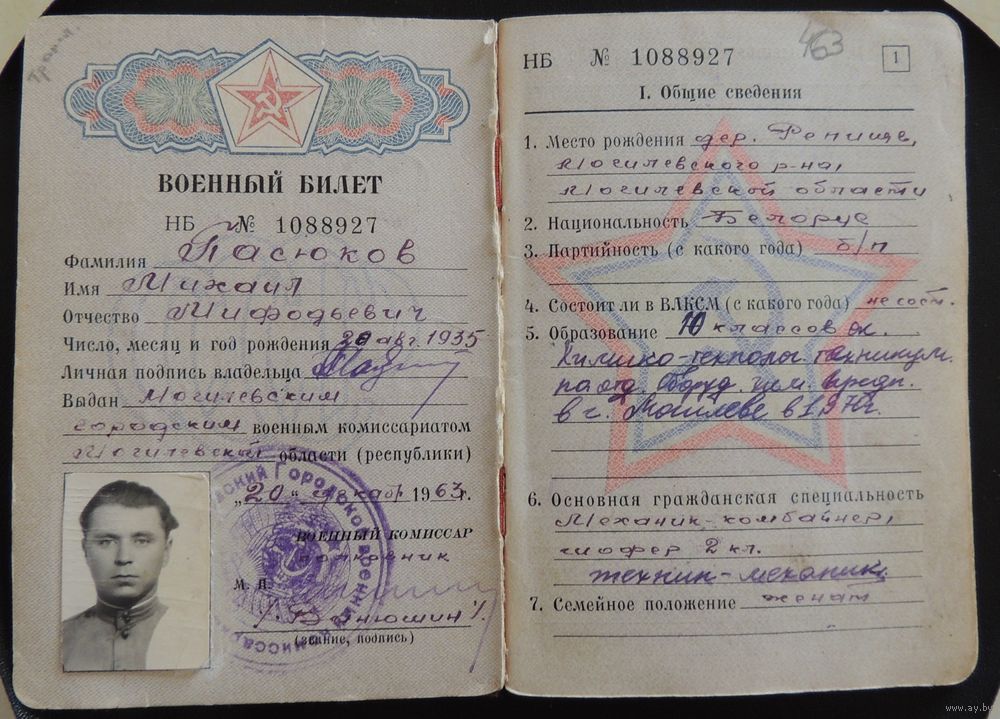 ВОЕННЫЙ БИЛЕТ
НБ № 1088927
Фамилия Пасюков
Имя Михаил
Отчество Мифодьевич
Число, месяц и год рождения 20 авг. 1935
Личная подпись владельца
Выдан Могилевским
городским военным комиссариатом
Могилевской области (республики)
"20" декабр 1963г.
ВОЕННЫЙ КОМИССАР
полковник
М. П.
/Ванюшин/
(звание, подпись)
463
НБ № 1088927
1
I. Общие сведения
1. Место рождения дер.
Могилевского р-на,
Могилевской области
2. Национальность Белорус
3. Партийность (с какого года) б/п
4. Состоит ли в ВЛКСМ (с какого года) не сост.
5. Образование 10 классов ок.
Химико-технолог. техникум
по отд. Оборуд. хим. предп.
в г. Могилеве в 1970г.
6. Основная гражданская специальность
Механик-комбайнер,
шофер 2 кл.
техник-механик
7. Семейное положение женат
www.ay.by